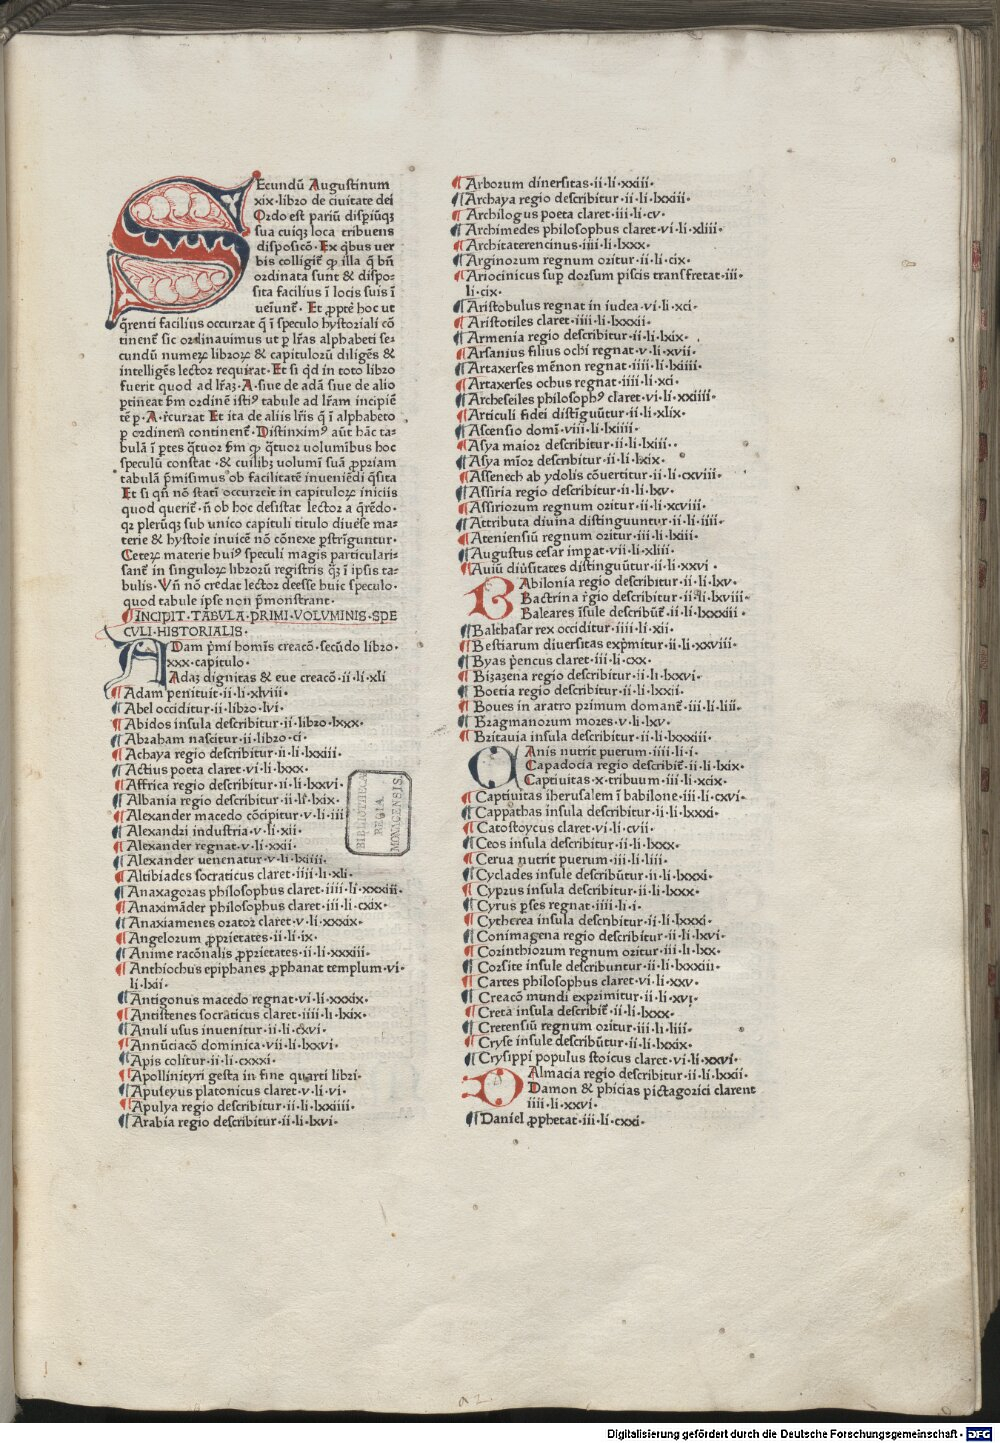 SEcundū Augustinum
xix·libro de ciuitate dei
Ordo est pariū dispiūqꝫ
sua cuiqꝫ loca tribuens
disposicō· Ex qͥbus uer
bis colligit̄ ꝙ illa q̄ bn̄
ordinata sunt & dispo⸗
sita facilius ī locis suis ī
ueīunt̄· Et ꝓpter̄ hoc ut
q̄renti facilius occurrat q̄ ī speculo hystoriali cō
tinent̄ sic ordinauimus ut ꝑ lr̄as alphabeti se⸗
cundū numeꝝ libroꝝ & capitulorū diligēs &
intelligēs lector requirat· Et si qͥd in toto libro
fuerit quod ad lr̄aꝫ·A·siue de adā siue de alio
ꝑtineat ẜm ordinē istiꝰ tabule ad lr̄am incipiē
tē ꝑ·A·rēcurrat Et ita de aliis lr̄is q̄ ī alphabeto
ꝑ ordinem continent̄· Distinximꝰ aūt hāc ta⸗
bulā ī ꝑtes qͣtuor ẜm ꝙ qͣtuor uolumībus hoc
speculū constat·& cuilibꝫ uolumī suā ꝓpriam
tabulā p̄misimus ob facilitatē inueniēdi q̄sita
Et si qn̄ nō statī occurrerit in capituloꝝ iniciis
quod querit̄·n̄ ob hoc desistat lector a q̄rēdo·
qꝛ plerūqꝫ sub unico capituli titulo diuēse ma⸗
terie & hystorie inuicē nō cōnexe ꝑstrīguntur·
Ceteꝝ materie huiꝰ speculi magis particulari⸗
sant̄ in singuloꝝ librorū registris qͣꝫ ī ipsis ta⸗
bulis· Vn̄ nō credat lector deesse huic speculo·
quod tabule ipse non p̄monstrant·
¶INCIPIT·TABVLA·PRIMI·VOLVMINIS·SPE
CVLI·HISTORIALIS·
ADam p̄mi homīs creacō·secūdo libro·
xxx·capitulo·
Adaꝫ dignitas & eue creacō·ii·li·xli
¶Adam penituit·ii·li·xlviii·
¶Abel occiditur·ii·libro·lvi·
¶Abidos insula describitur·ii·libro·lxxx·
¶Abraham nascitur·ii·libro·ci·
¶Achaya regio describitur·ii·li·lxxiii·
¶Actius poeta claret·vi·li·lxxx·
¶Affrica regio describitur·ii·li·lxxvi·
¶Albania regio describitur·ii·li·lxix·
¶Alexander macedo cōcipitur·v·li·iii
¶Alexandri industria·v·li·xii·
¶Alexander regnat·v·li·xxii·
¶Alexander uenenatur·v·li·lxiiii·
¶Altibiades socraticus claret·iiii·li·xli·
¶Anaxagoras philosophus claret·iiii·li·xxxiii·
¶Anaximāder philosophus claret·iii·li·cxix·
¶Anaxiamenes orator claret·v·li·xxxix·
¶Angelorum ꝓprietates·ii·li·ix·
¶Anime racōnalis ꝓprietates·ii·li·xxxiii·
¶Anthiochus epiphanes ꝓphanat templum·vi·
li·lxii·
¶Antigonus macedo regnat·vi·li·xxxix·
¶Antistenes socraticus claret·iiii·li·lxix·
¶Anuli usus inuenitur·ii·li·cxvi·
¶Annūciacō dominica·vii·li·lxxvi·
¶Apis colitur·ii·li·cxxxi·
¶Apollinityri gesta in fine quarti libri·
¶Apuleyus platonicus claret·v·li·vi·
¶Apulya regio describitur·ii·li·lxxiiii·
¶Arabia regio describitur·ii·li·lxvi·
BIBLIOTHECA
REGIA
MONACENSIS.
¶Arborum diuersitas·ii·li·xxiii·
¶Archaya regio describitur·ii·li·lxxiii·
¶Archilogus poeta claret·iii·li·cv·
¶Archimedes philosophus claret·vi·li·xliii·
¶Architaterencinus·iiii·li·lxxx·
¶Arginorum regnum oritur·ii·li·cix·
¶Ariocinicus suꝑ dorsum piscis transfretat·iii·
li·cix·
¶Aristobulus regnat in iudea·vi·li·xci·
¶Aristotiles claret·iiii·li·lxxxii·
¶Armenia regio describitur·ii·li·lxix·
¶Arsanius filius ochi regnat·v·li·xvii·
¶Artaxerses mēnon regnat·iiii·li·lxiiii·
¶Artaxerses ochus regnat·iiii·li·xci·
¶Archeseiles philosophꝰ claret·vi·li·xxiiii·
¶Articuli fidei distīguūtur·ii·li·xlix·
¶Ascensio domī·viii·li·lxiiii·
¶Asya maior describitur·ii·li·lxiii·
¶Asya mīor describitur·ii·li·lxix·
¶Assenech ab ydolis cōuertitur·ii·li·cxviii·
¶Assiria regio describitur·ii·li·lxv·
¶Assiriorum regnum oritur·ii·li·xcviii·
¶Attributa diuina distinguuntur·ii·li·iiii·
¶Ateniensiū regnum oritur·iii·li·lxiii·
¶Augustus cesar imꝑat·vii·li·xliii·
¶Auiū diūsitates distinguūtur·ii·li·xxvi·
BAbilonia regio describitur·ii·li·lxv·
Bactrina rēgio describitur·ii·li·lxviii·
Baleares īsule describūt̄·ii·li·lxxxiii·
¶Balthasar rex occiditur·iiii·li·xii·
¶Bestiarum diuersitas exp̄mitur·ii·li·xxviii·
¶Byas p̄encus claret·iii·li·cxx·
¶Bizazena regio describitur·ii·li·lxxvi·
¶Boetia regio describitur·ii·li·lxxii·
¶Boues in aratro primum domant̄·iii·li·liii·
¶Bragmanorum mores·v·li·lxv·
¶Britauia insula describitur·ii·li·lxxxiii·
CAnis nutrit puerum·iiii·li·i·
Capadocia regio describit̄·ii·li·lxix·
Captiuitas·x·tribuum·iii·li·xcix·
¶Captiuitas iherusalem ī babilone·iii·li·cxvi·
¶Cappathas insula describitur·ii·li·lxxxi·
¶Catostoycus claret·vi·li·cvii·
¶Ceos insula describitur·ii·li·lxxx·
¶Cerua nutrit puerum·iii·li·liii·
¶Cyclades insule describūtur·ii·li·lxxxi·
¶Cyprus insula describitur·ii·li·lxxx·
¶Cyrus ꝑses regnat·iiii·li·i·
¶Cytherea insula describitur·ii·li·lxxxi·
¶Conimagena regio describitur·ii·li·lxvi·
¶Corinthiorum regnum oritur·iii·li·lxx·
¶Corsite insule describuntur·ii·li·lxxxiii·
¶Cartes philosophus claret·vi·li·xxv·
¶Creacō mundi exprimitur·ii·li·xvi·
¶Creta insula describit̄·ii·li·lxxx·
¶Cretensiū regnum oritur·iii·li·liii·
¶Cryse insule describūtur·ii·li·lxxix·
¶Crysippi populus stoicus claret·vi·li·xxvi·
DAlmacia regio describitur·ii·li·lxxii·
Damon & phicias pictagorici clarent
iiii·li·xxvi·
¶Daniel ꝓphetat·iii·li·cxxi·
a2
Digitalisierung gefördert durch die Deutsche Forschungsgemeinschaft - DFG